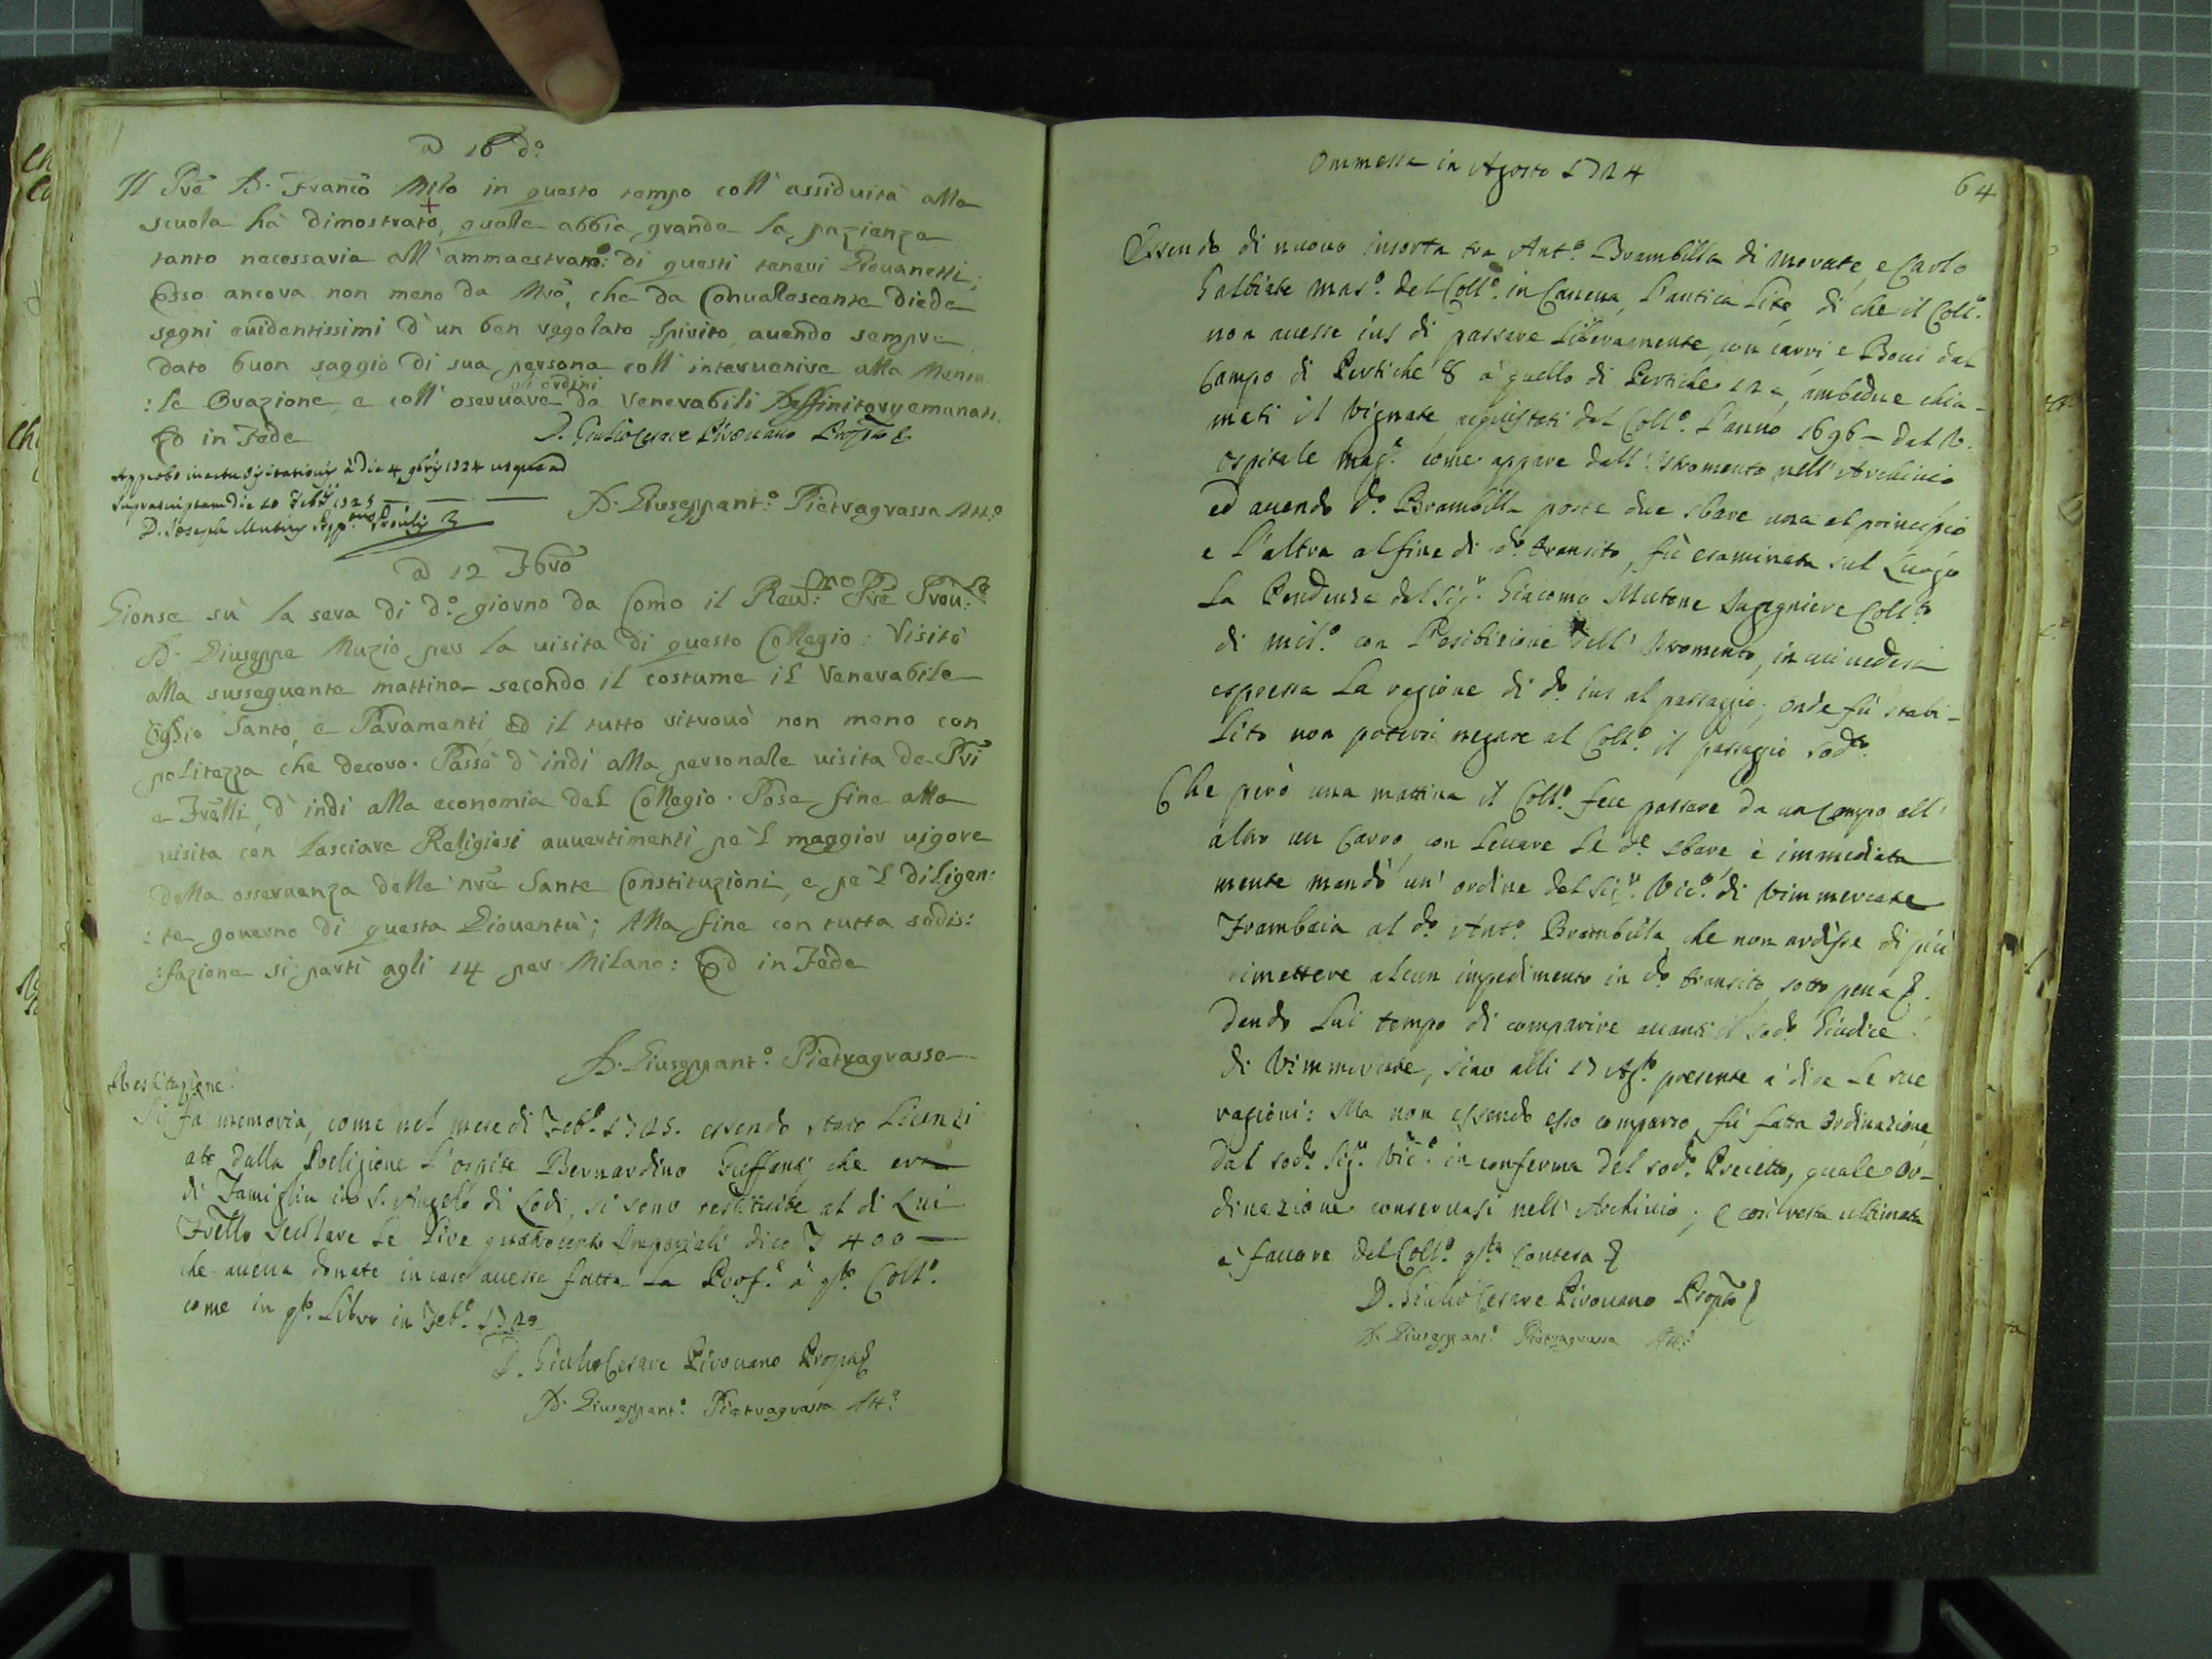 a 18 d.o
Il Prē D. Franco Milo in questo tempo coll' assiduità alla
scuola hà dimostrato, quale abbia grande la pazienza
tanto necessaria all' ammaestram.o: di questi teneri Giouanetti;
Esso ancora non meno da Mro, che da Conualescente diede
segni euidentissimi d' un ben regolato spirito, auendo sempre
dato buon saggio di sua persona coll' interuenire alla Menta
:le Orazione, e coll' oseruare gli ordini da Venerabili Deffinitory emanati.
Ed in Fede
D. Giulio Cesare Pirouano Prop.to &
Approbo in actu visitationis à die 4 9bris 1724 usque ad
suprascriptam die 20 Feb. 1725
D. Joseph Mutius Prep.tus Prou.lis
D. Giuseppant.o Pietragrassa Att.o
a 12 Fbro
Gionse sù la sera di d.o giorno da Como il Reu:mo Prē Prou:le
D. Giuseppe Muzio per la uisita di questo Collegio: Visitò
alla susseguente mattina secondo il costume il Venerabile
Oglio Santo, e Paramenti, Ed il tutto ritrouò non meno con
politezza che decoro. Passò d' indi alla personale uisita de Prī
e Frēlli, d' indi alla economia del Collegio. Pose fine alla
uisita con lasciare Religiosi auuertimenti pe'l maggior uigore
della osseruanza delle nrē Sante Constituzioni, e pe'l diligen:
:te gouerno di questa Giouentù; Alla fine con tutta sodis:
:fazione si partì agli 14 per Milano: Ed in Fede
D. Giuseppant.o Pietragrassa
Restituzione.
Si fà memoria, come nel mese di Feb.o 1725. essendo stato Licenzi
ato dalla Religione l'ospite Bernardino Guffanti che era
di Famiglia in S. Angelo di Lodi, si sono restituite al di Lui
Frēllo secolare le Lire quattrocento Imperiali dico 400
che aueua donate in caso auesse fatta la Prof.e à q.to Coll.o
come in q.to Libro in Feb.o 1720
D. Giulio Cesare Pirouano Prop.to &
D. Giuseppant.o Pietragrassa Att.o
Ommessa in Agosto 1724
64
Essendo di nuouo insorta tra Ant.o Brambilla di Merate, e Carlo
Galbiate mas.o del Coll.o in Cauena, l'antica Lite, di che il Coll.o
non auesse ius di passare liberamente con carri e Boui dal
Campo di Pertiche 8 à quello di Pertiche 12, ambedue chia-
mati il Vignate acquistati dal Coll.o l'anno 1696 dal V.
ospitale mag.e come appare dall' Istromento nell' Archiuio
ed auendo d.o Brambilla poste due sbare una al principio
e l'altra al fine di d.o transito, fù esaminata sul Luogo
La Pendenza dal Sig.r Giacomo Mutone Ingegniere Coll.to
di Mil.o con l'esibizione dell' Istromento, in cui uedesi
espressa La ragione di d.o ius al passaggio; onde fù stabi-
lito non potersi negare al Coll.o il passaggio sod.o
Che però una mattina il Coll.o fece passare da un Campo all'
altro un Carro, con leuare le d.e sbare è immediata
mente mandò un' ordine del Sig.r Vic.o di Vimmercate
Trambaia al d.o Ant.o Brambilla che non ardisse di più
rimettere alcun impedimento in d.o transito, sotto pena &.
dando Lui tempo di comparire auanti il sod.o Giudice
di Vimmercate, sino alli 17 Ag.to presente à dire Le sue
ragioni: Ma non essendo esso comparso, fù fatta ordinazione
dal sod.o Sig.r Vic.o in conferma del sod.o Precetto, quale Or-
dinazione conseruasi nell' Archiuio; e così resta ultimata
à fauore del Coll.o q.ta Contesa &
D. Giulio Cesare Pirouano Prop.to &
D. Giuseppant.o Pietragrassa Att.o